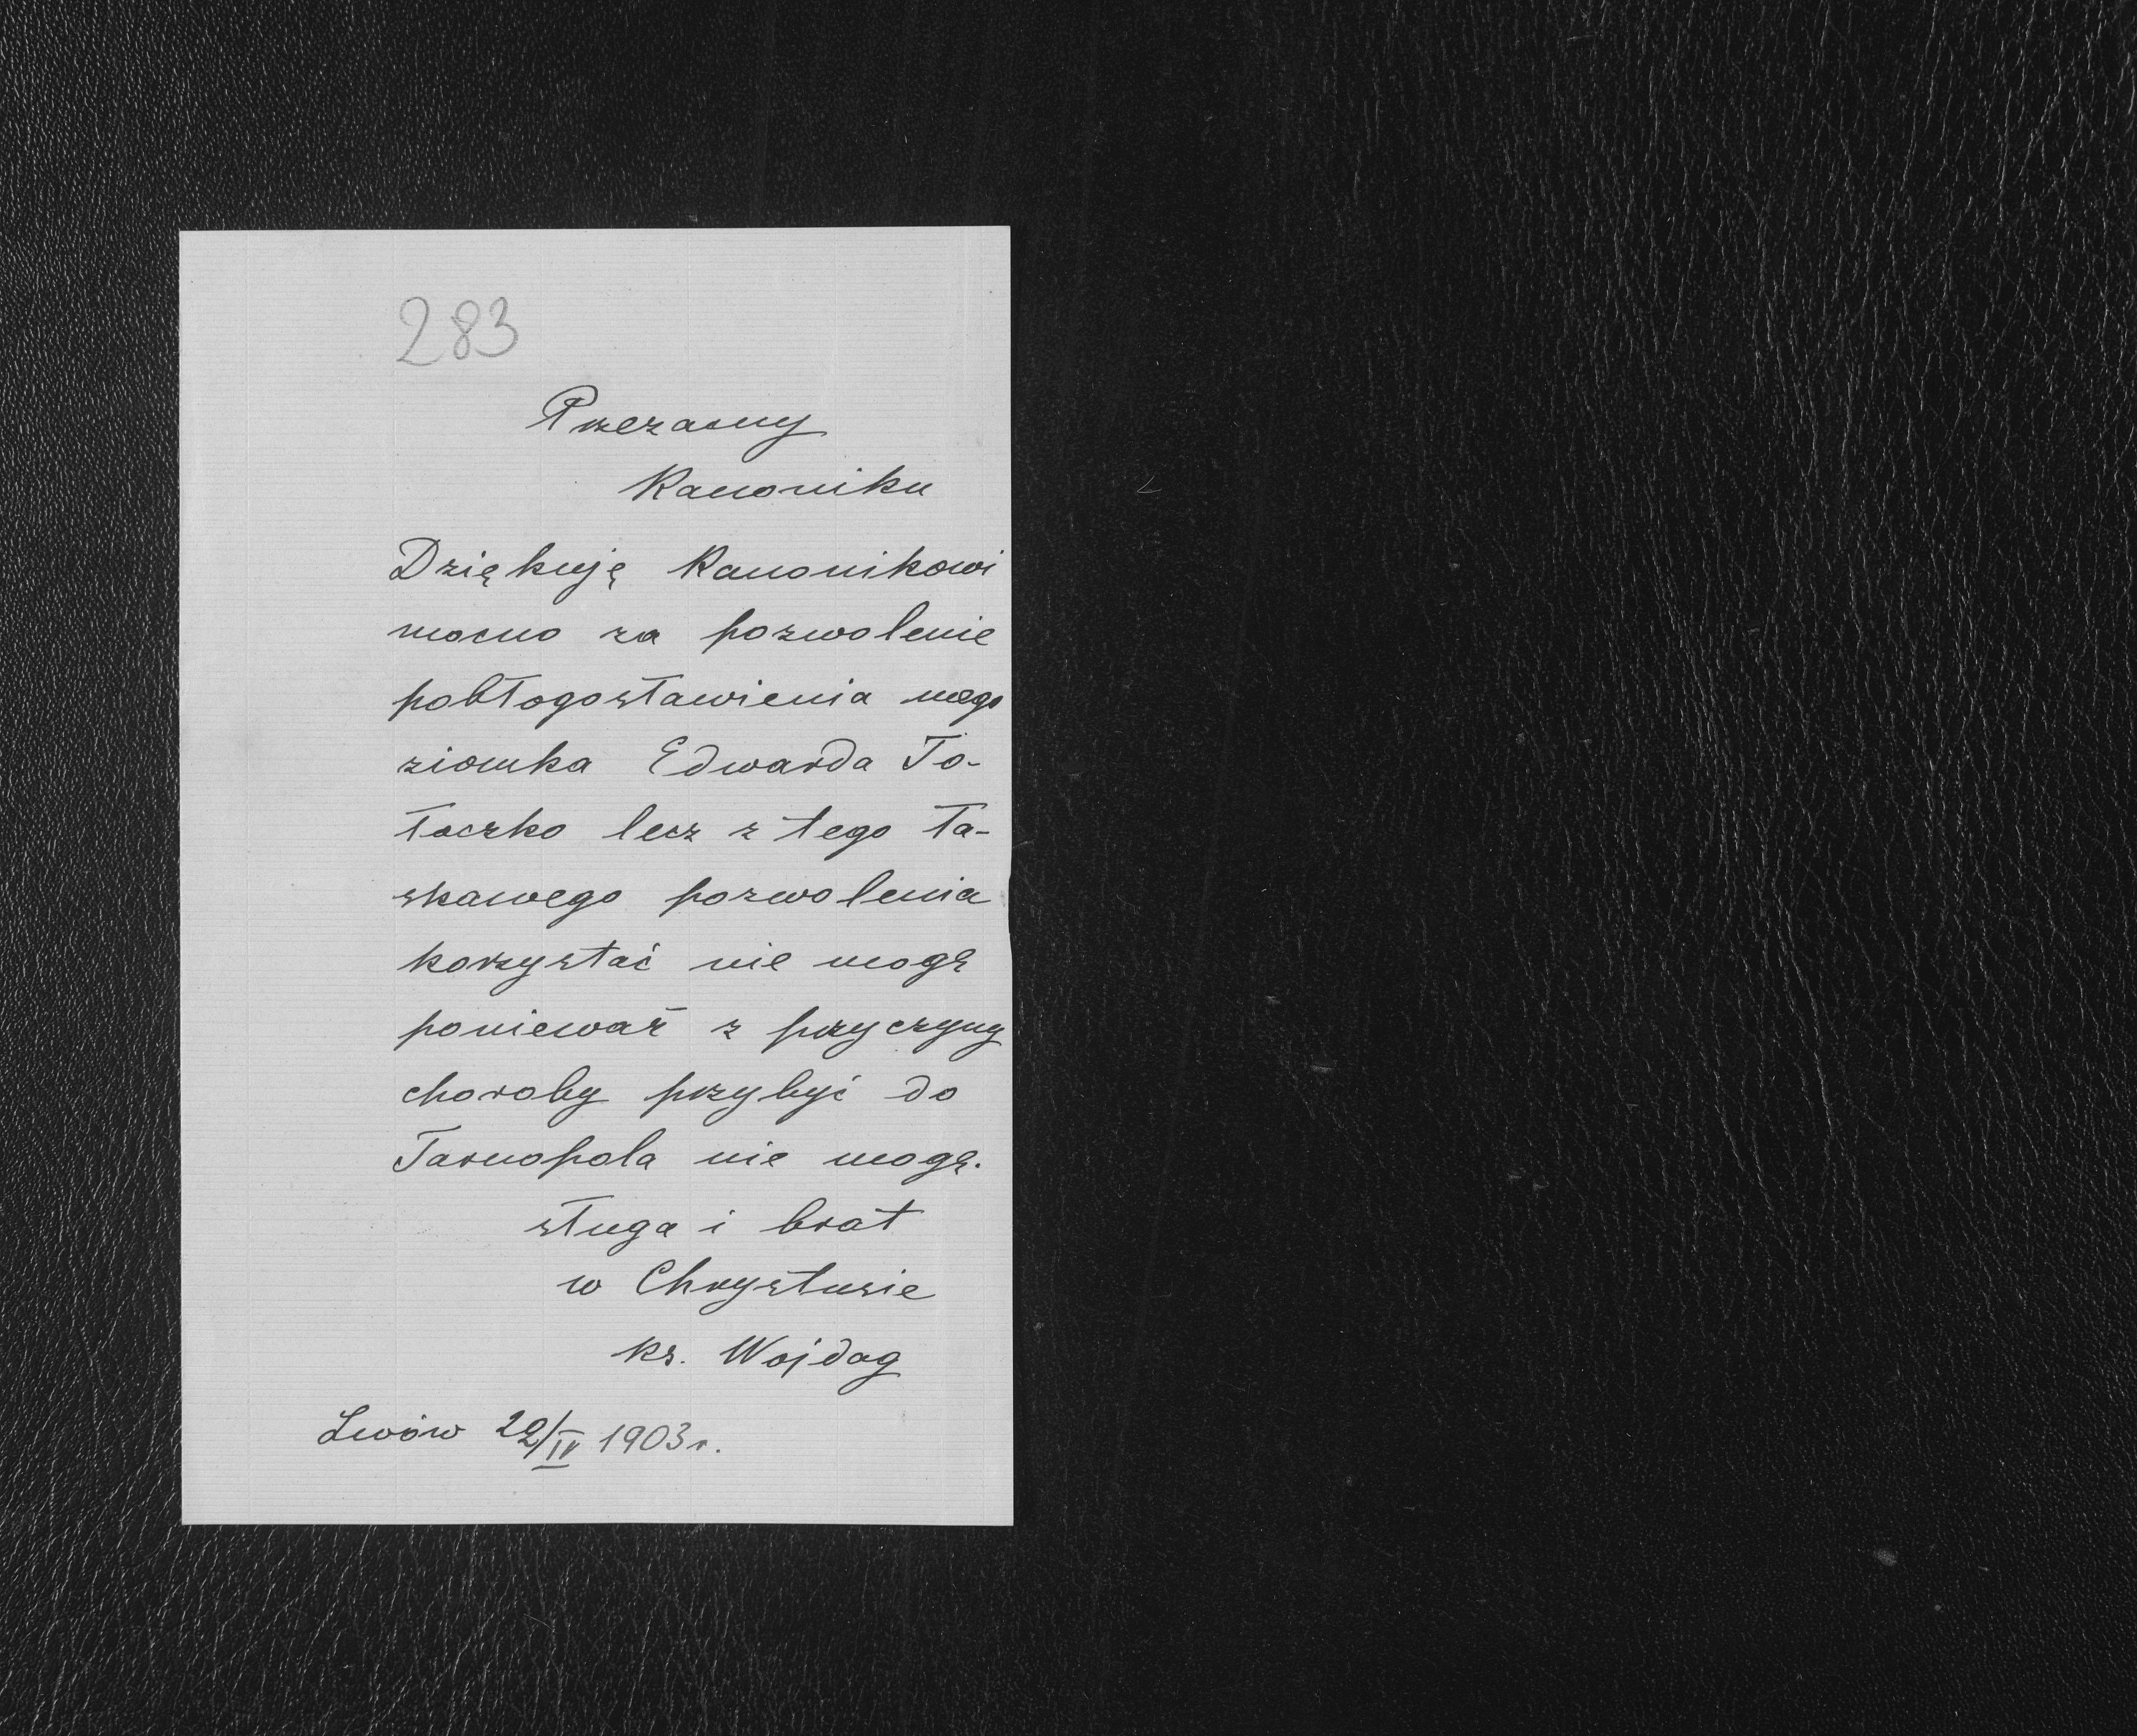 283
Przezacny
Kanoniku
Dziękuję Kanonikowi
mocno za pozwolenie
pobłogosławienia mego
ziomka Edwarda To-
łoczko lecz z tego ła-
skawego pozwolenia
korzystać nie mogę
ponieważ z przyczyny
choroby przybyć do
Tarnopola nie mogę.
sługa i brat
w Chrystusie
ks. Wojdag
Lwów 22/IV 1903 r.